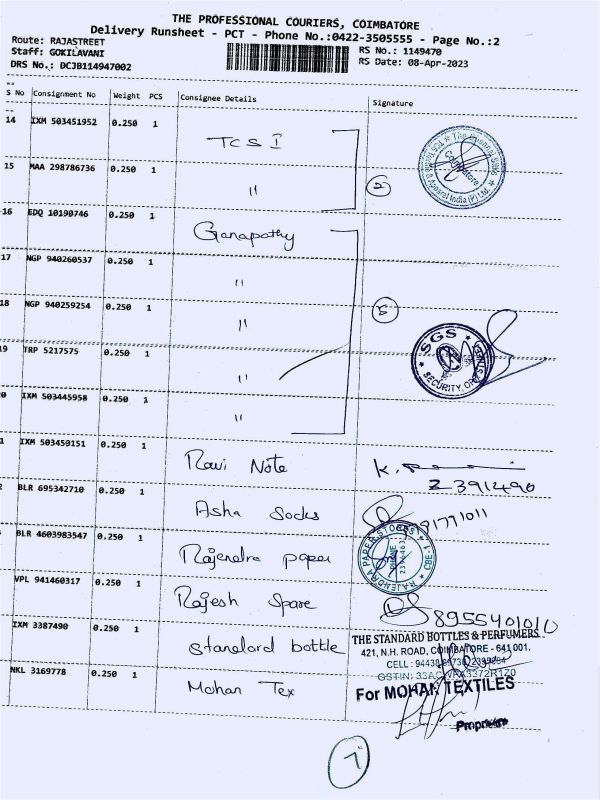 THE PROFESSIONAL COURIERS, COIMBATORE
Delivery Runsheet - PCT - Phone No.:0422-3505555 - Page No.:2
Route: RAJASTREET
Staff: GOKILAVANI
DRS No.: DCJB114947002
RS No.: 1149470
RS Date: 08-Apr-2023
S No Consignment No Weight PCS Consignee Details Signature
14 IXM 503451952 0.250 1 TCS I
15 MAA 298786736 0.250 1 "
16 EDQ 10190746 0.250 1 Ganapathy
17 NGP 940260537 0.250 1 "
18 NGP 940259254 0.250 1 "
19 TRP 5217575 0.250 1 "
0 IXM 503445958 0.250 1 "
1 IXM 503450151 0.250 1 Ravi Note
2 BLR 695342710 0.250 1 Asha Socks
BLR 4603983547 0.250 1 Rajendra paper
VPL 941460317 0.250 1 Rajesh Spare
IXM 3387490 0.250 1 standard bottle
NKL 3169778 0.250 1 Mohan Tex
2
Coimbatore
5
SGS
SECURITY
K.
2391490
RAJENDRA PAPER STORES
CBE-1
8955401010
THE STANDARD BOTTLES & PERFUMERS
421, N.H. ROAD, COIMBATORE - 641 001.
CELL :
GSTIN:
For MOHAN TEXTILES
Proprietor
7